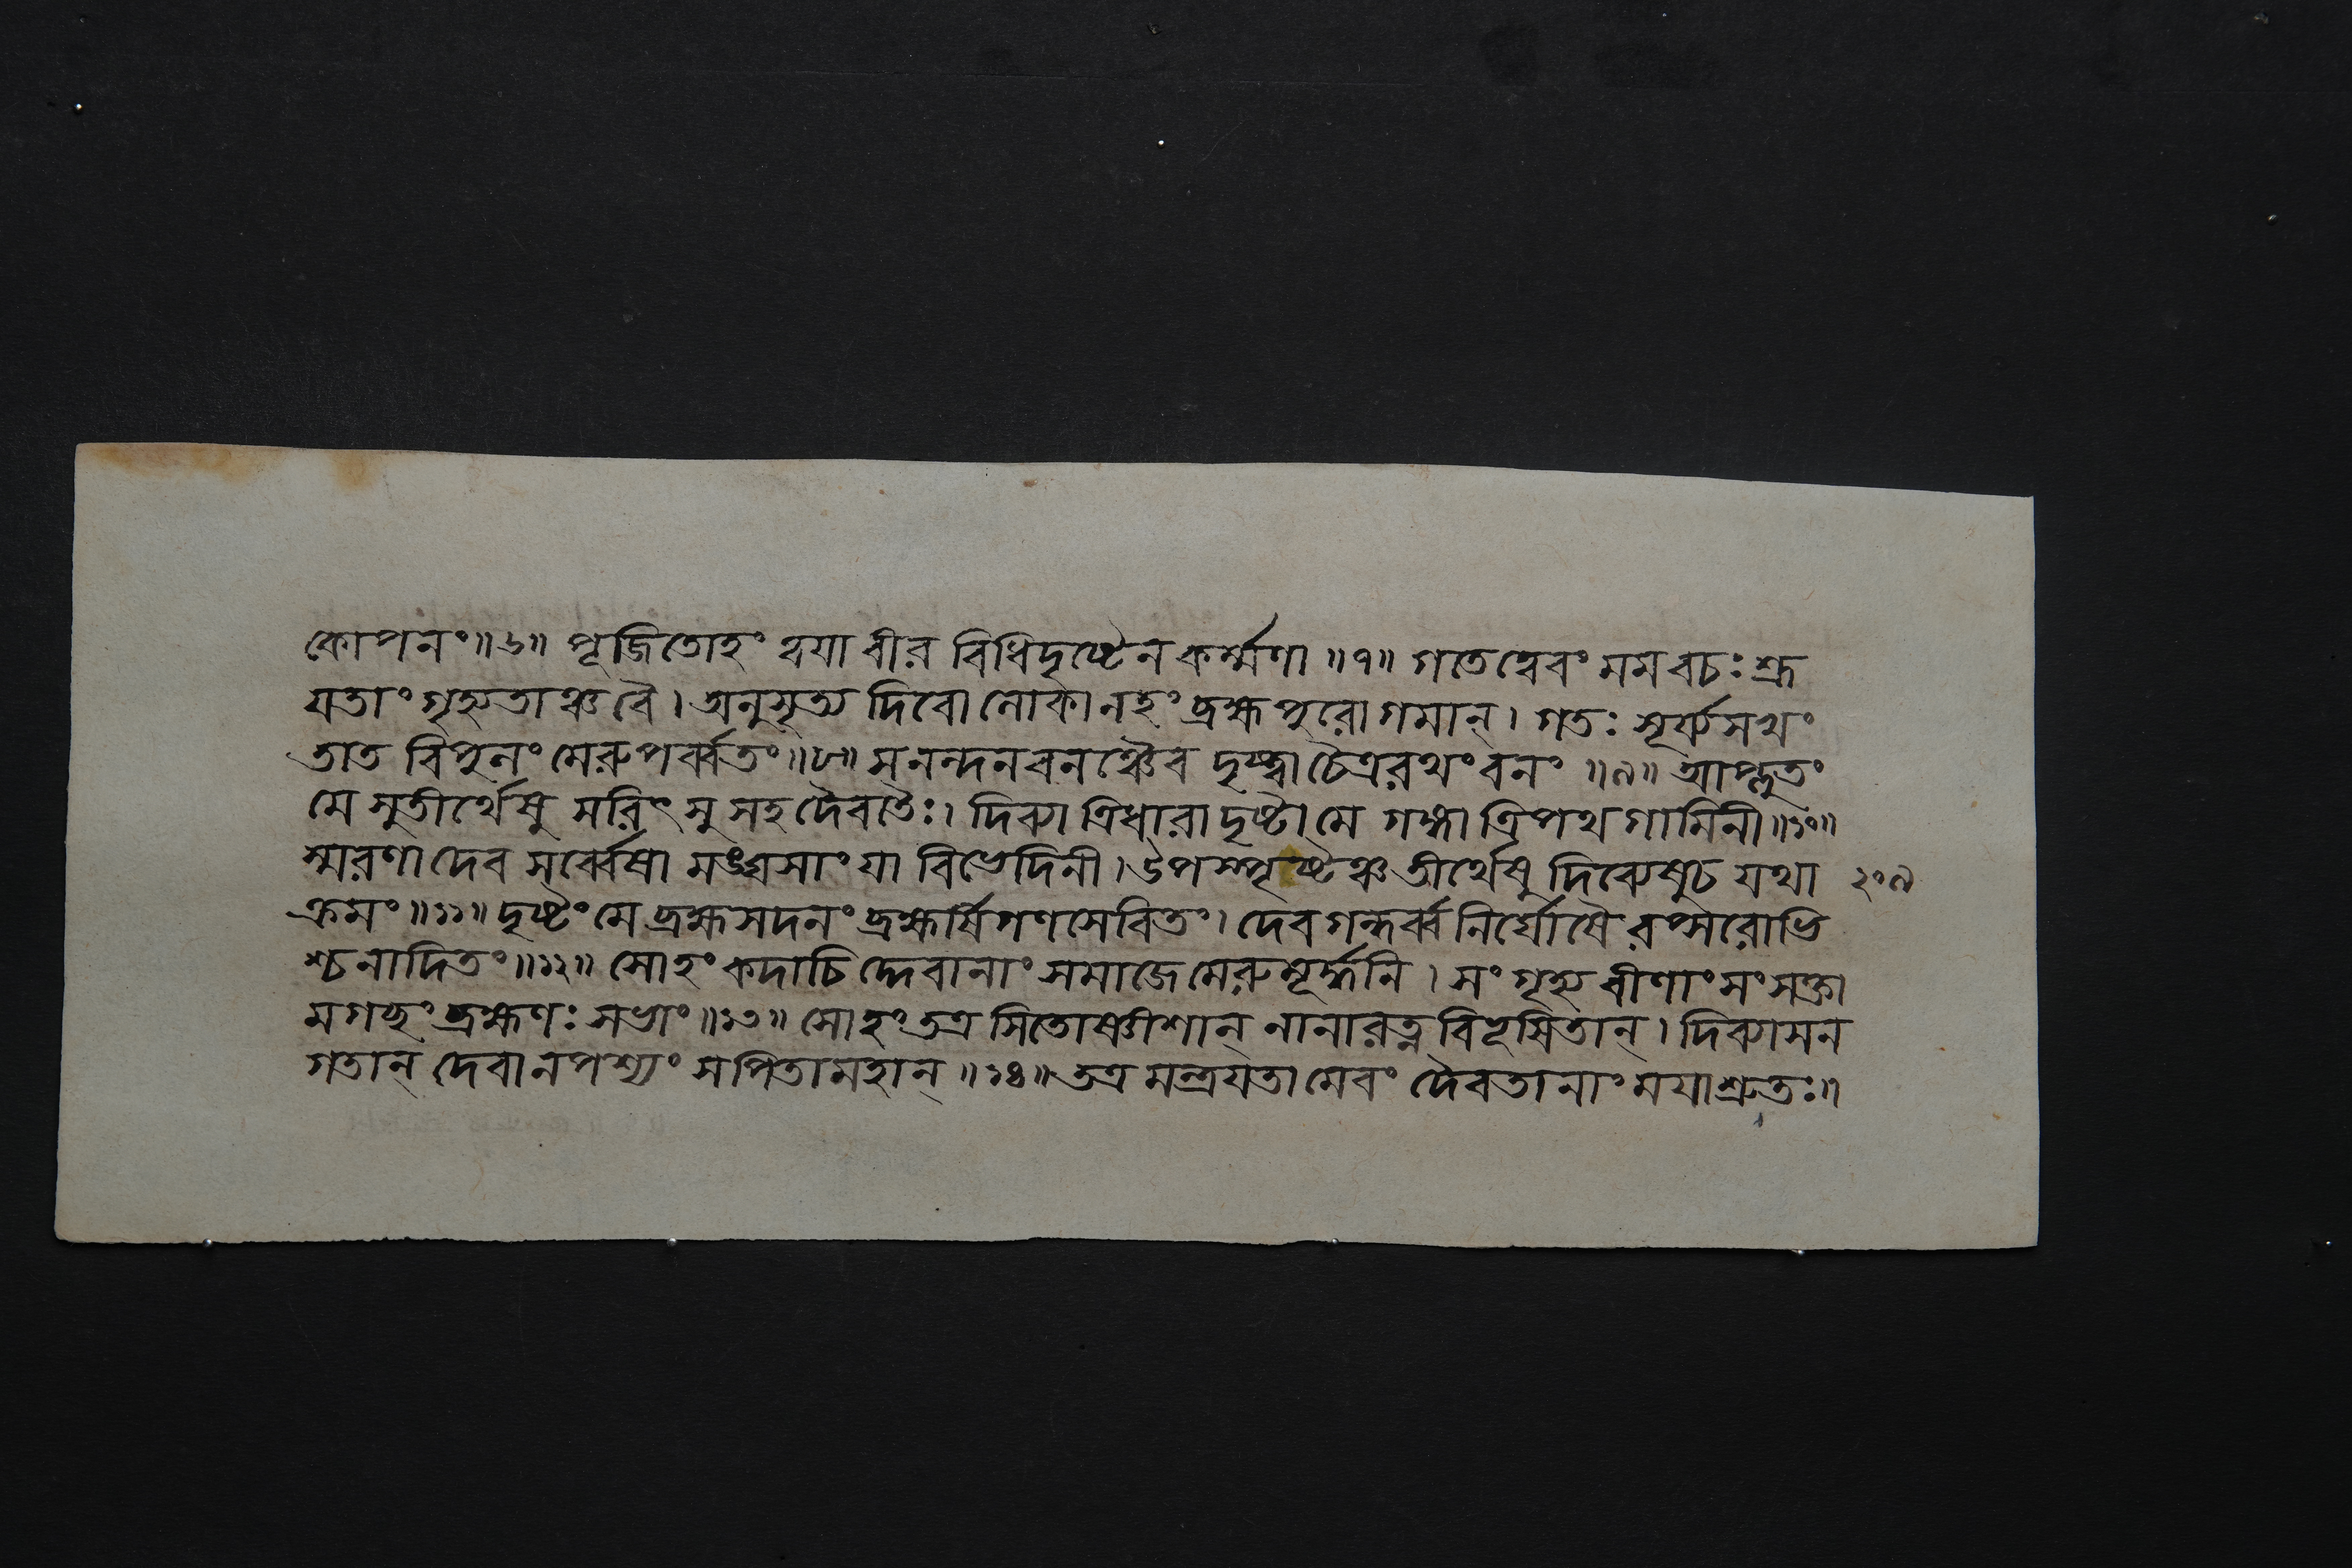 কোপনং॥৬॥ পূজিতোহং ত্বয়া বীর বিধিদৃষ্টেন কর্ম্মণা ॥৭॥ গতেত্বেবং মমবচঃ শ্রূ
যতাং গৃহ্যতাঞ্চবৈ। অনুসৃত্য দিবোলোকানহং ব্রহ্মপুরোগমান্। গতঃ সূর্য্যসখং
তাত বিপুলং মেরুপর্ব্বতং॥৮॥ সনন্দনবনঞ্চৈব দৃষ্ট্বাচৈত্ররথংবনং ॥৯॥ আপ্লুতং
মে সুতীর্থেষু সরিৎসু সহদৈবতৈঃ। দিব্যাত্রিধারাদৃষ্টামে গঙ্গাত্রিপথগামিনী॥১০॥
স্মরণাদেব সর্ব্বেষামঙ্ঘসাংযা বিভেদিনী। উপস্পৃষ্টঞ্চতীর্থেষু দিব্যেষুচ যথা ২০৯
ক্রমং॥১১॥ দৃষ্টংমে ব্রহ্মসদনং ব্রহ্মর্ষিগণসেবিতং। দেবগন্ধর্ব্বনির্ঘোষৈরপ্সরোভি
শ্চনাদিতং॥১২॥ সোহংকদাচিদ্দেবানাং সমাজেমেরুমূর্দ্ধনি। সংগৃহ্য বীণাংসংসক্তা
মগচ্ছংব্রহ্মণঃ সভাং॥১৩॥ সোহংতত্রসিতোষ্ণীশান্ নানারত্নবিভূসিতান্। দিব্যাসন
গতান্ দেবানপশ্যং সপিতামহান্ ॥১৪॥ তত্রমন্ত্রযতামেবং দৈবতানাং ময়াশ্রুতঃ॥